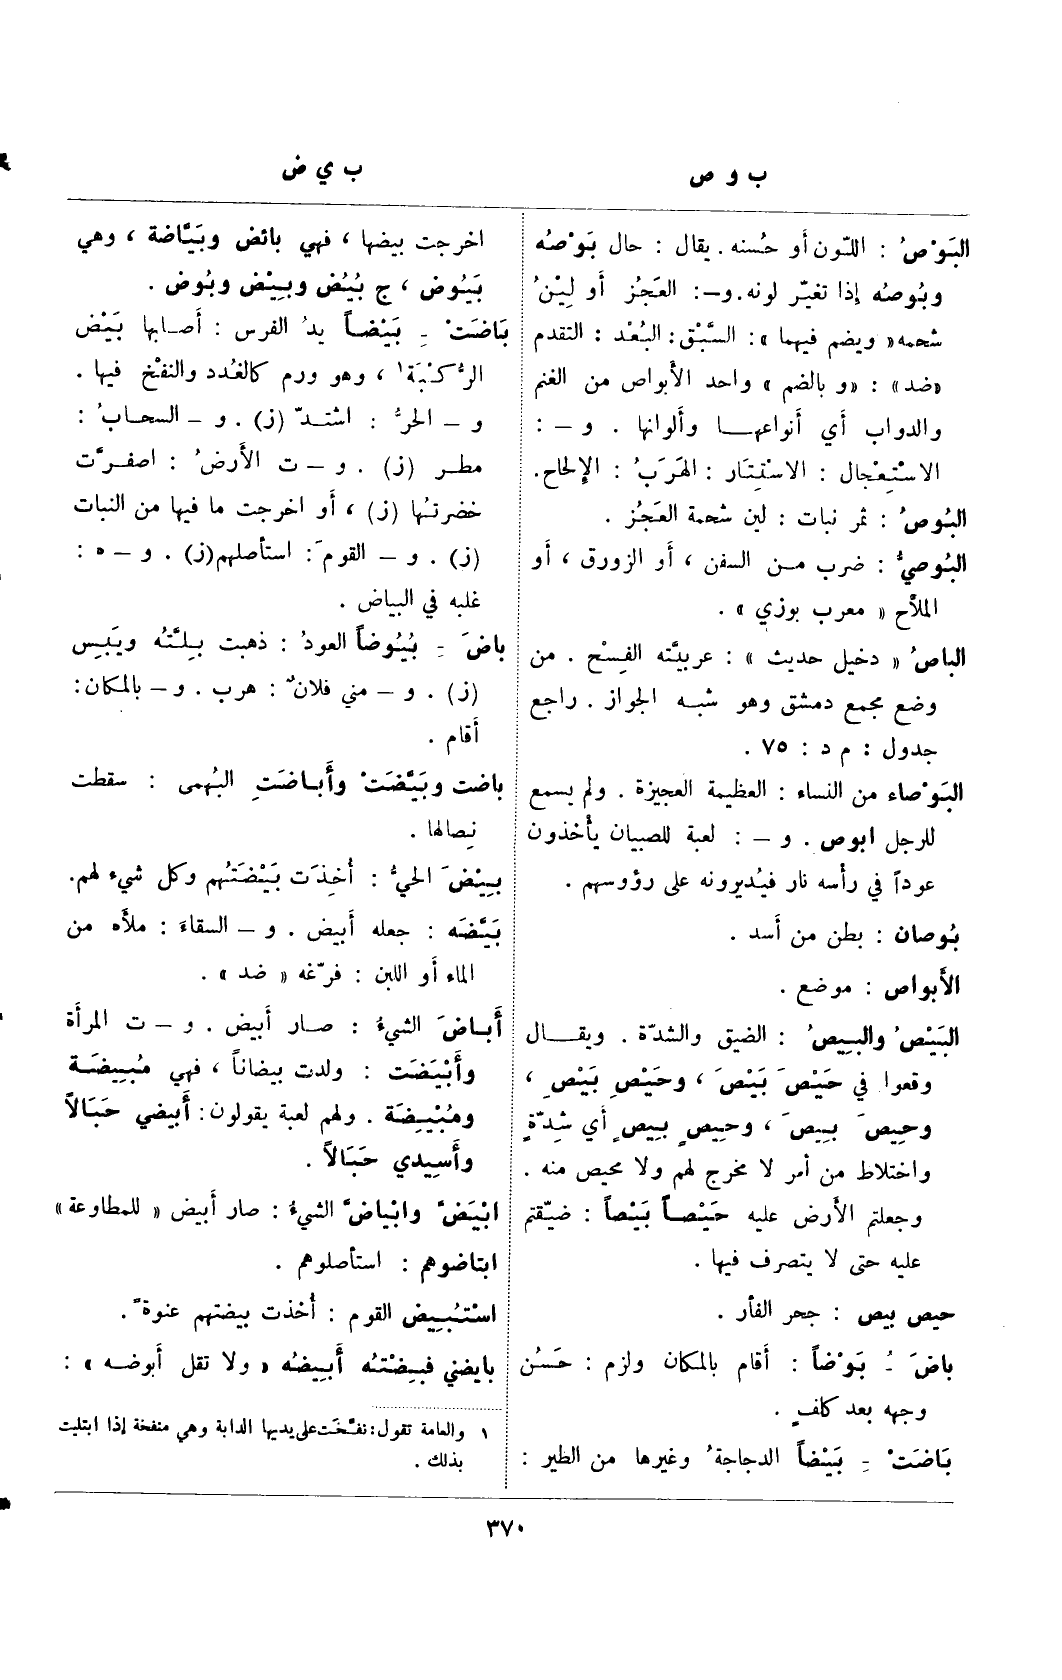 ب و ص
ب ي ض
البَوْصُ : اللّون أو حُسنه . يقال : حال بَوْصُه
وبُوصُه إذا تغيّر لونه . و–: العَجُز أو لِيْنُ
شحمه « ويضم فيهما » : السَّبْق : البُعْد : التقدم
«ضد» : «و بالضم» واحد الأبواص من الغنم
والدواب أي أنواعهـا وألوانها . و – :
الاسْتِعْجال : الاسْتِتَار : الهَرَبُ : الإلحاح .
البُوصُ : ثمر نبات : لين شحمة العَجُز .
البُوصيُّ : ضرب مـن السفن ، أو الزورق ، أو
الملاَّح « معرب بوزي » .
الباصُ « دخيل حديث » : عربيَّته الفِسْح . من
وضع مجمع دمشق وهو شبـه الجواز . راجع
جدول : م د : ٧٥ .
البَوْصاء من النساء : العظيمة العجيزة . ولم يسمع
للرجل ابوص . و – : لعبة للصبيان يأخذون
عوداً في رأسه نار فيُديرونه على رؤوسهم .
بُوصان : بطن من أسد .
الأبواص : موضع .
البَيْصُ والبِيصُ : الضيق والشدّة . ويقـال
وقعوا في حَيْصَ بَيْصَ ، وحَيْصِ بَيْصِ ،
وحِيصَ بِيصَ ، وحِيصٍ بِيصٍ أي شِدّةٍ
واختلاط من أمر لا مخرج لهم ولا محيص منه .
وجعلتم الأرض عليه حَيْصـاً بَيْصاً : ضيّقتم
عليه حتى لا يتصرف فيها .
حيص بيص : جحر الفأر .
باضَ ـُ بَوْضاً : أقام بالمكان ولزم : حَسُن
وجهه بعد كلفٍ .
بَاضَتْ ـِ بَيْضاً الدجاجةُ وغيرها من الطير :
اخرجت بيضها ، فهي بائض وبَيَّاضة ، وهي
بَيُوض ، ج بُيُض وبِيْض وبُوض .
بَاضَتْ ـِ بَيْضـاً يدُ الفرس : أصابها بَيْض
الرُّكْبَة١ ، وهو ورم كالغُدد والنفْخ فيها .
و – الحرُّ : اشتـدّ (ز) . و – السحـابُ :
مطـر (ز) . و – ت الأرضُ : اصفـرَّت
خضرتُها (ز) ، أو اخرجت ما فيها من النبات
(ز) . و – القومَ : استأصلهم (ز) . و – ه :
غلبه في البياض .
باضَ ـِ بُيُوضاً العودُ : ذهبت بِلَّتُه ويَبِس
(ز) . و – مني فلانٌ : هرب . و – بالمكان :
أقام .
باضت وبَيَّضَتْ وأَبـاضَتِ البُهمى : سقطت
نِصالها .
بِيْضَ الحيُّ : أُخِذَت بَيْضَتُهم وكل شيء لهم .
بَيَّضَه : جعله أبيض . و – السقاءَ : ملأه من
الماء أو اللبن : فرّغه « ضد » .
أَبـاضَ الشيءُ : صـار أبيض . و – ت المرأة
وأَبْيَضَت : ولدت بيضاناً ، فهي مُبِيضَـة
ومُبْيِضَة . ولهم لعبة يقولون : أَبيضي حَبَالاً
وأَسِيدي حَبَالاً .
ابْيَضَّ وابْياضَّ الشيءُ : صار أبيض « للمطاوعة »
ابتاضوهم : استأصلوهم .
اسْتُبِيض القوم : أُخذت بيضتهم عنوةً .
بايضني فبِضْتُه أَبِيضُه « ولا تقل أبوضـه » :
١ والعامة تقول : نفَّخَت على يديها الدابة وهي منفخة إذا ابتليت
بذلك .
٣٧٠